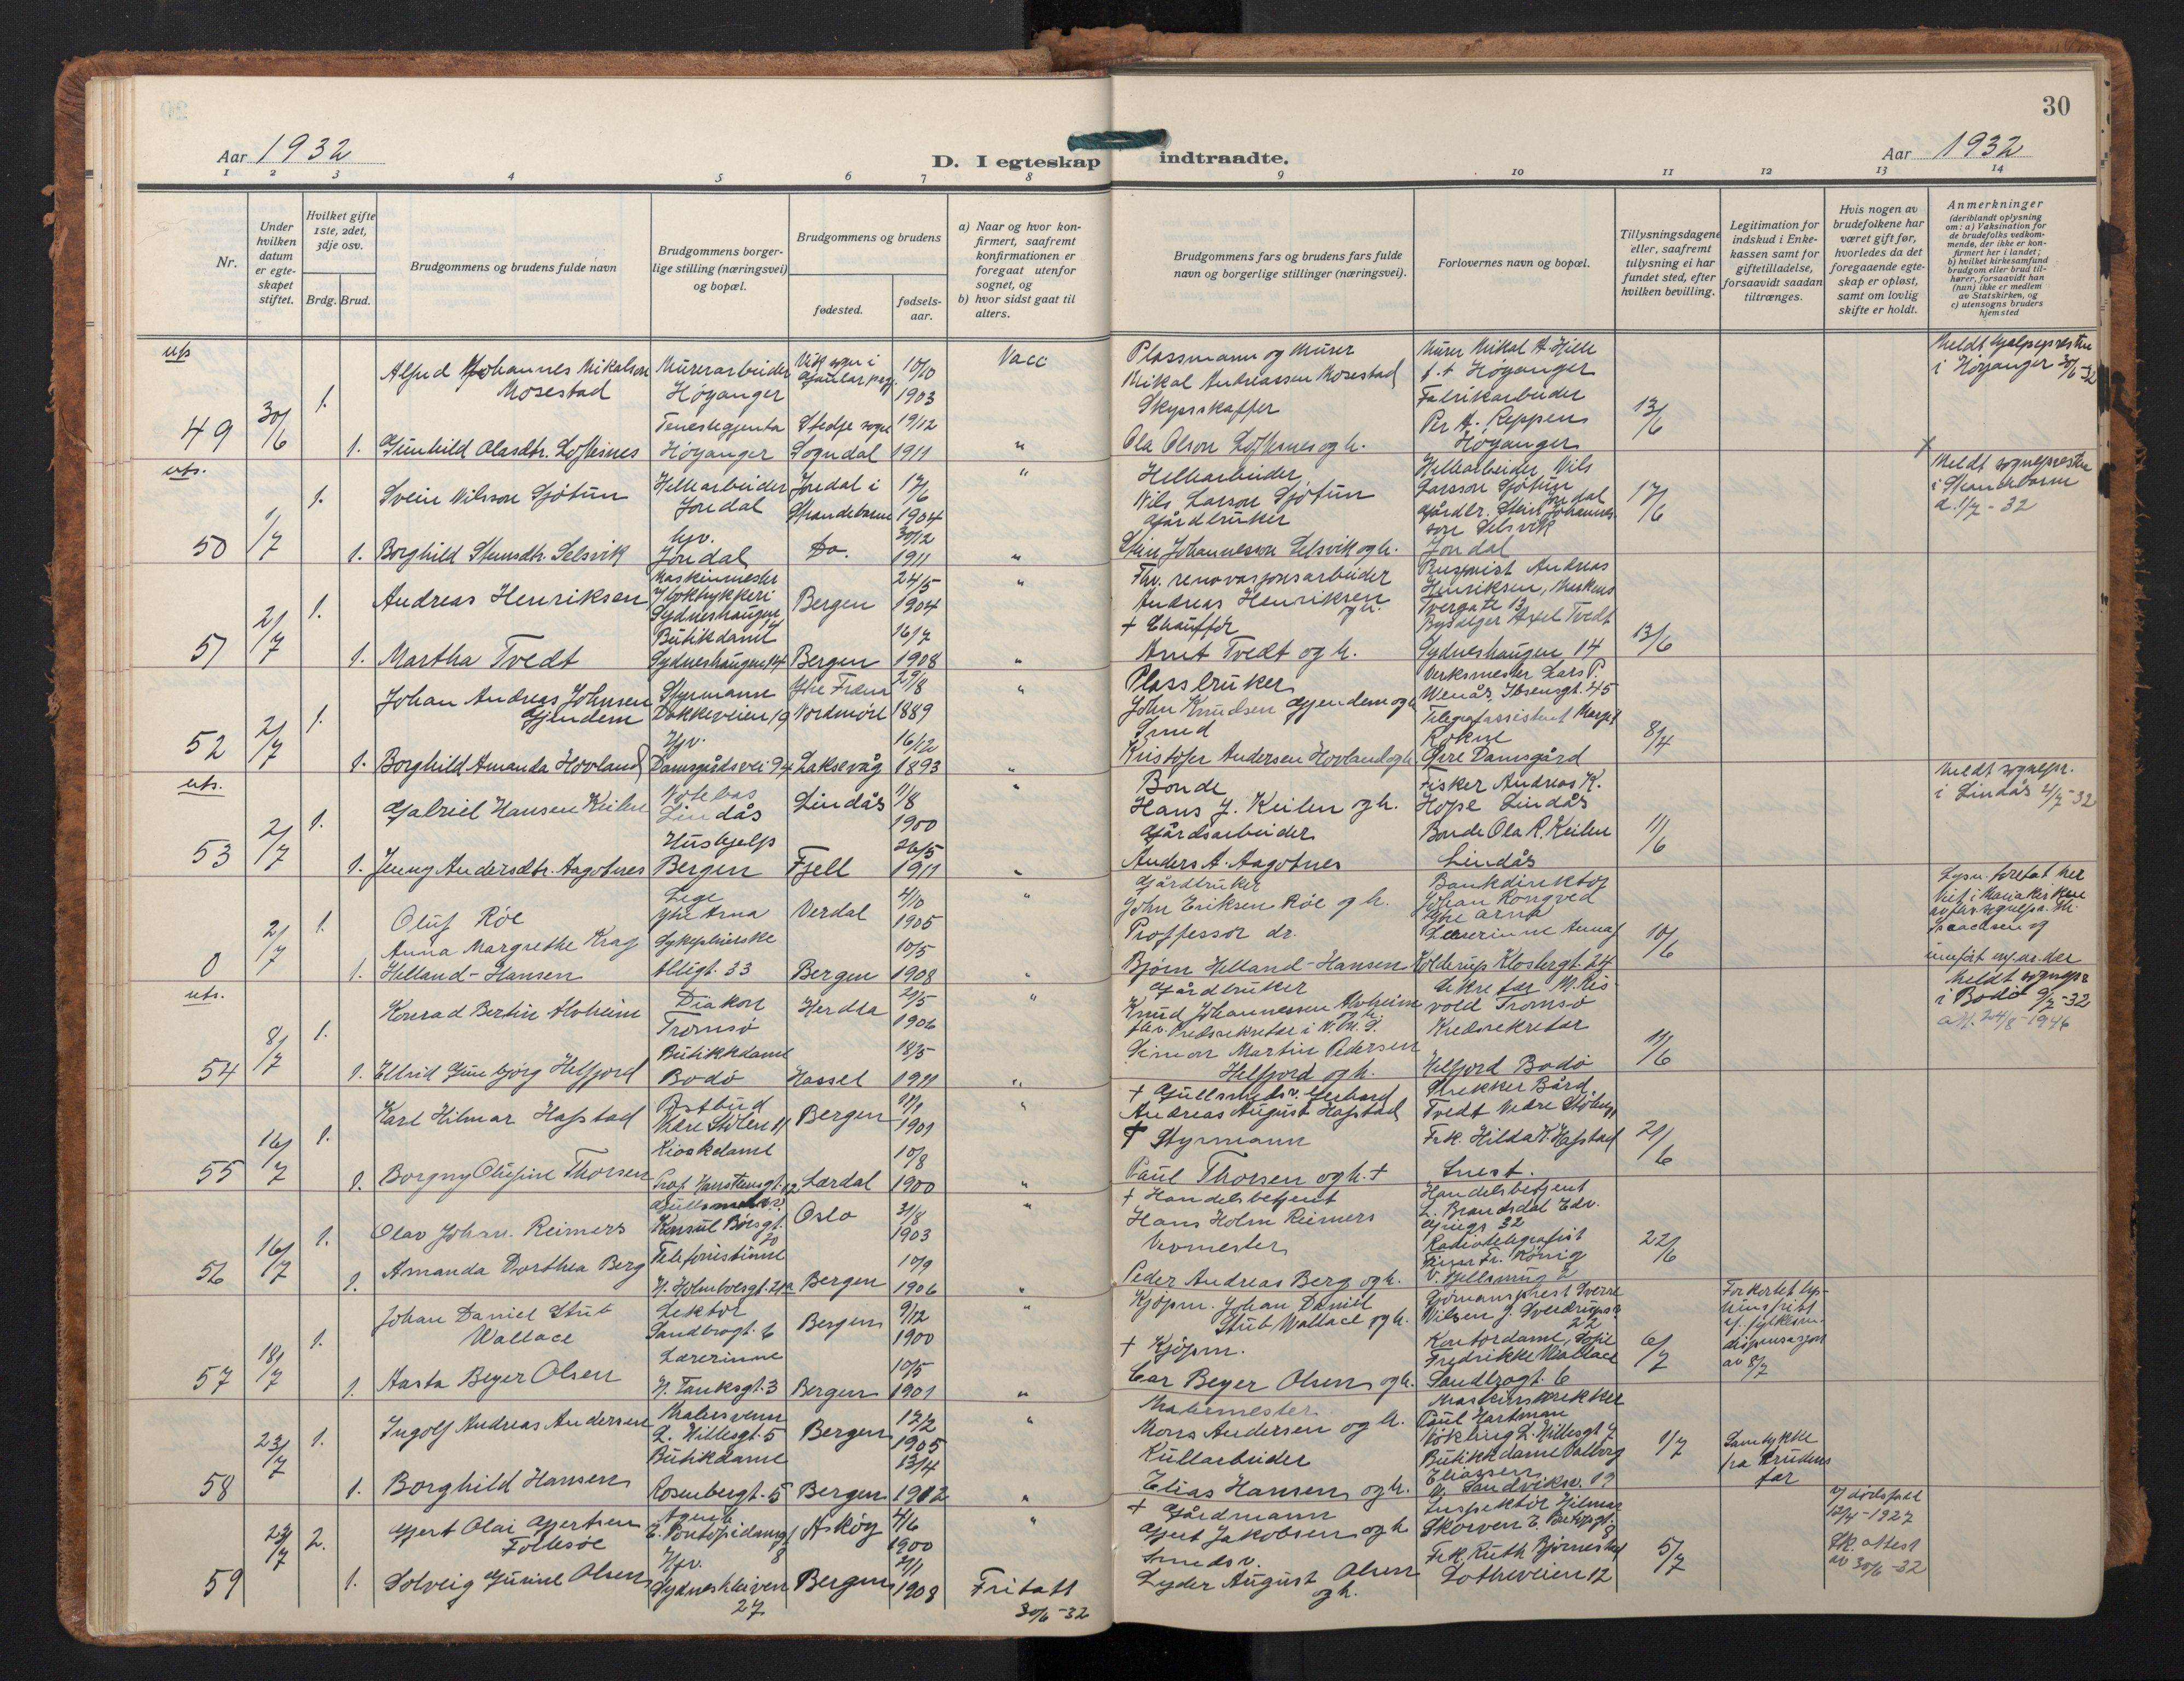 30
Aar 1932
D. I egteskap indtraadte.
Aar 1932
1 2 3 4 5 6 7 8 9 10 11 12 13 14
Nr.
Under hvilken datum er egteskapet stiftet.
Hvilket gifte 1ste, 2det, 3dje osv.
Brdg. Brud.
Brudgommens og brudens fulde navn
Brudgommens borgerlige stilling (næringsvei) og bopæl.
Brudgommens og brudens
fødested.
fødselsaar.
a) Naar og hvor konfirmert, saafremt konfirmationen er foregaat utenfor sognet, og
b) hvor sidst gaat til alters.
Brudgommens fars og brudens fars fulde navn og borgerlige stillinger (næringsvei).
Forlovernes navn og bopæl.
Tillysningsdagene eller, saafremt tillysning ei har fundet sted, efter hvilken bevilling.
Legitimation for indskud i Enkekassen samt for giftetilladelse, forsaavidt saadan tiltrænges.
Hvis nogen av brudefolkene har været gift før, hvorledes da det foregaaende egteskap er opløst, samt om lovlig skifte er holdt.
Anmerkninger
(deriblandt oplysning om: a) Vaksination for de brudefolks vedkommende, der ikke er konfirmert her i landet; b) hvilket kirkesamfund brudgom eller brud tilhører, forsaavidt han (hun) ikke er medlem av Statskirken, og c) utensogns bruders hjemsted
49 30/6 1. Alfred Johannes Mikalson Mosestad Murerarbeider Høyanger Vik sogn i Gaular 10/10 1903 Vacc Plassmann og Murer Mikal Andreassen Mosestad Murer Mikal A. Hjelle Høyanger 13/6 Meldt hjelpepresten i Høyanger 30/6-32
1. Gunhild Olasdtr. Loftesnes Tenestegjenta Høyanger Stedje sogn Sogndal 19/12 1911 " Skysskaffer Ola Olson Loftesnes og h. Fabrikarbeider Per A. Reppen Høyanger
uts.
50 1/7 1. Svein Nilsson Sjøtun Hellearbeider Jondal Jondal i Strandebarm 17/6 1904 " Hellearbeider Nils Larson Sjøtun Hellearbeider Nils Larsson Sjøtun Jondal 17/6 Meldt sognepresten i Strandebarm d. 1/7-32
1. Borghild Steinsdtr. Selsvik hv. Jondal Do. 30/12 1911 " Gårdbruker Stein Johannesson Selsvik og h. Gårdbr. Stein Johannesson Selsvik Jondal
51 2/7 1. Andreas Henriksen Maskinmester Sydneshaugen 14 Bergen 24/5 1904 " Fhv. renovasjonsarbeider Andreas Henriksen og h. Andreas Henriksen, Markens Tvergate 13 13/6
1. Martha Tvedt Butikdame Sydneshaugen 14 Bergen 16/7 1908 " + Chauffør Arnt Tvedt og h. Axel Tvedt Sydneshaugen 14
52 2/7 1. Johan Andreas Johnsen Gjendem Styrmann Dokkeveien 19 Ytre Fræna Nordmøre 29/8 1889 " Plassbruker John Knudsen Gjendem og h. Verksmester Lars P. Wenås, Ibsensgt. 45 8/4
1. Borghild Amanda Hovland Hv. Damsgårdsvei 94 Laksevåg 16/12 1893 " Smed Kristofer Andersen Hovland og h. Telegrafassistent Margit Rokne Øvre Damsgård
uts.
53 2/7 1. Gabriel Hansen Keilen Notebas Lindås Lindås 11/8 1900 " Bonde Hans J. Keilen og h. Fisker Andreas K. Hope Lindås 11/6 Meldt sognepr. i Lindås 4/7-32
1. Jenny Andersdtr. Aagotnes Hushjelp Bergen Fjell 26/5 1911 " Gårdsarbeider Anders A. Aagotnes Bonde Ola R. Keilen Lindås
0 2/7 1. Oluf Röe Læge Ytre Arna Verdal 4/10 1905 " Gårdbruker John Eriksen Röe og h. Bankdirektør Johan Rongved Ytre Arna 10/6
1. Anna Margrethe Krag Helland-Hansen Sykepleierske Allégt. 33 Bergen 10/5 1908 " Proffessor dr. Bjørn Helland-Hansen Lærerinne Kolderup Klostergt. 24
uts.
54 8/7 1. Konrad Bertin Alvheim Diakon Tromsø Herdla 2/5 1906 " Gårdbruker Knud Johannessen Alvheim og h. Sekretær M. Risvold Tromsø 11/6 Meldt sognepr. i Bodö 9/7-32
att. 24/8-1946
1. Ellrid Gunbjörg Helfjord Butikkdame Bodö Hassel 18/5 1911 " Simon Martin Pedersen Helfjord og h. Kredssekretær Helfjord Bodö
55 16/7 1. Karl Hilmar Hafstad Postbud Nedre Stölen 11 Bergen 11/1 1901 " + Andreas August Hafstad Snekker Bård Tvedt Nedre Stölen 21/6
1. Borgny Olufine Thorsen Kioskdame Prof. Hansteensgt. 12 Lærdal 10/8 1900 " + Styrmann Paul Thorsen og h. + Frk. Hilda K. Hafstad Smst.
56 16/7 1. Olav Johan Reimers Konsul Børsgt. 20 Oslo 31/8 1903 " + Handelsbetjent Hans Holm Reimers Handelsbetjent L. Brandsdal Edv. Griegs 32 22/6
1. Amanda Dorthea Berg Telefonistinne H. Holmboesgt. 21a Bergen 10/9 1906 " Vevmester Peder Andreas Berg og h. Radiotelegrafist Fr. König
57 18/7 1. Johan Daniel Stub Wallace Lektor Sandbrogt. 6 Bergen 9/12 1900 " Kjøpm. Johan Daniel Stub Wallace og h. Sjømansprest Sverre Nilsen J. Sverdrupsgt. 22 6/7 Forkortet lysningsfrist dispensasjon av 8/7
1. Aasta Beyer Olsen Lærerinne H. Tanksgt. 3 Bergen 10/5 1901 " + Kjøpm. Carl Beyer Olsen og h. Kontordame Sofie Fredrikke Wallace Sandbrogt. 6
58 23/7 1. Ingolf Andreas Andersen Malersvenn L. Hillesgt. 5 Bergen 12/2 1905 " Malermester Mons Andersen og h. Maskinsnekker Paul Hartman L. Hillesgt 7 1/7 Samtykke fra brudens far
1. Borghild Hansen Butikdame Rosenbergt. 5 Bergen 13/4 1912 " Kullarbeider Elias Hansen og h. Butikkdame Valborg Eliassen Sandviksv. 19
59 23/7 2. Gjert Olai Gjertsen Follesöe Agent E. Pontoppidansgt. 8 Askøy 4/6 1900 " + Gårdmann Gjert Jakobsen og h. Inspektör Hilmar Skorven E. Pontoppgt. 8 5/7 v/ dødsfall 12/4-1927 Sk. attest av 30/6-32
1. Solveig Gurine Olsen Hv. Sydneskleiven 27 Bergen 2/11 1908 Fritatt 30/6-32 Smedsv. Lyder August Olsen og h. Frk. Ruth Bjørnestad Lotheveien 12